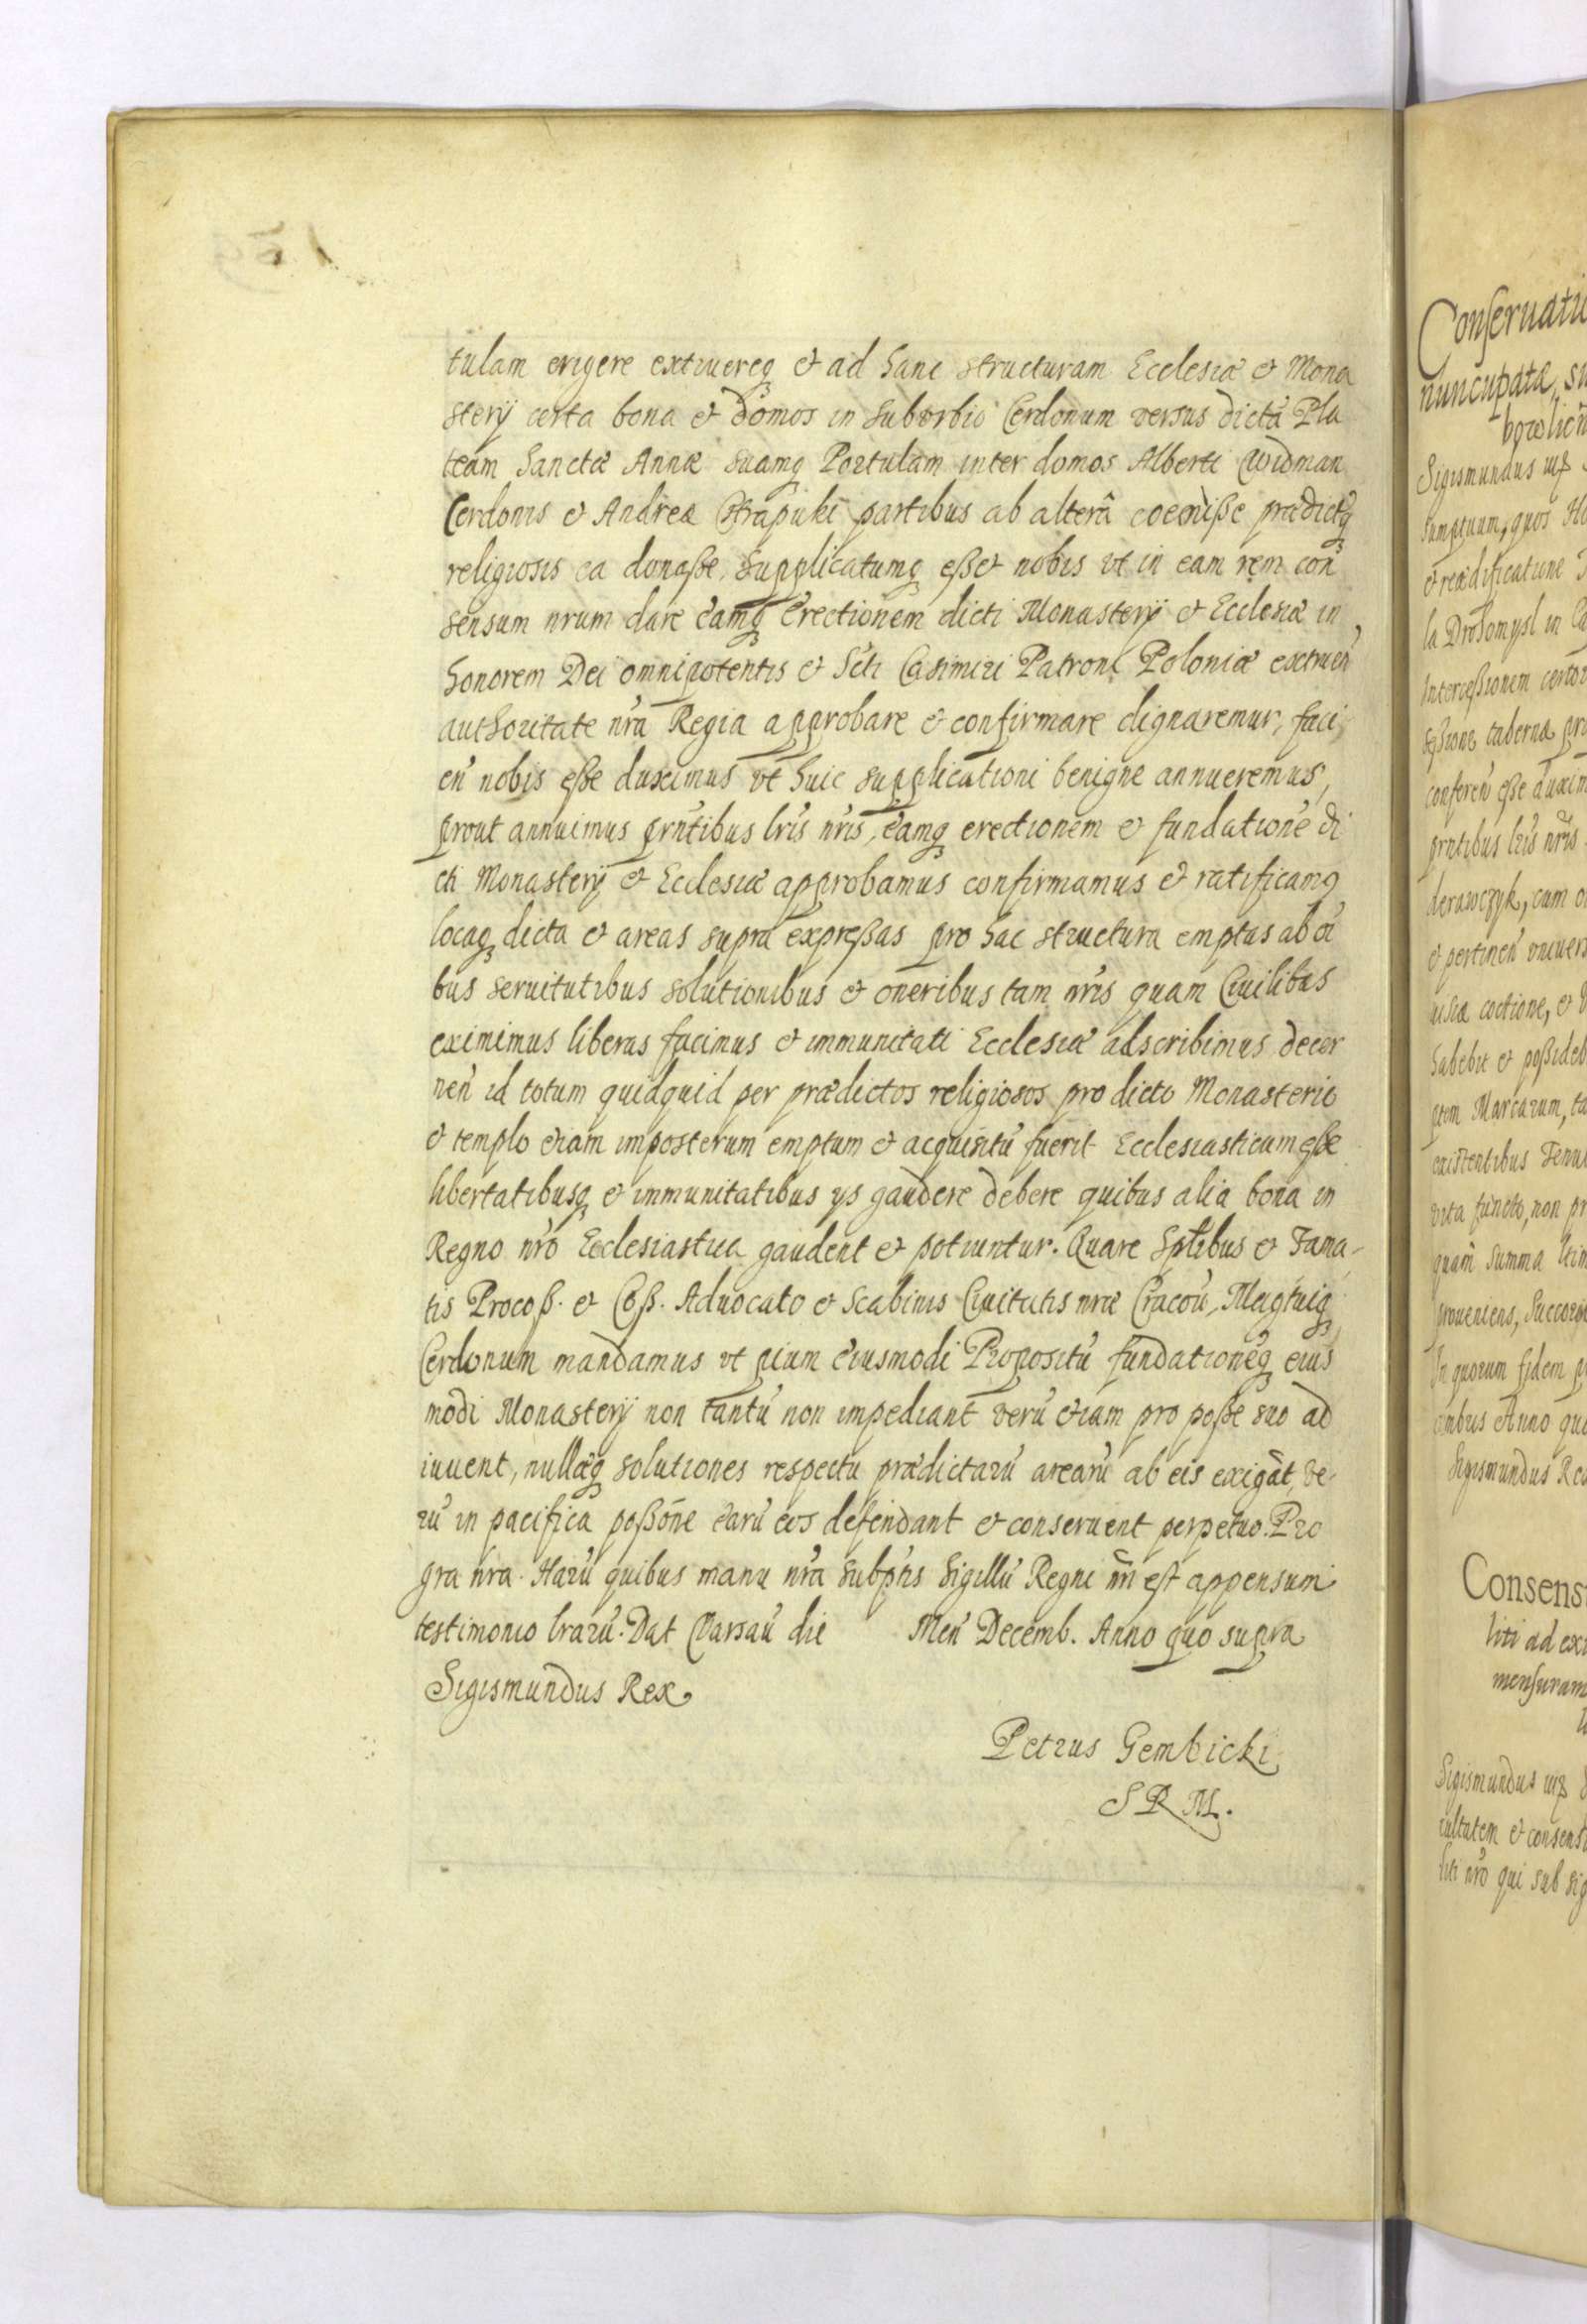 tulam erigere extruereq & ad hanc structuram Ecclesiæ & Mona
sterÿ certa bona & domos in suburbio Cerdonum versus dictã Pla
team Sanctæ Annæ suamq Portulam inter domos Alberti Widman
Cerdonis & Andreæ partibus ab alterâ coemisse prædictisq
religiosis ea donasse, supplicatumq esset nobis vt in eam rem con
sensum nrum dare eamq Erectionem dicti Monasterÿ & Ecclesiæ in
honorem Dei omnipotentis & Scti Casimiri Patroni Poloniæ extruen
authoritate nrã Regia approbare & confirmare dignaremur, faci
en nobis esse duximus vt huic supplicationi benigne annueremus,
prout annuimus prntibus lris nris, eamq erectionem & fundatione di
cti Monasterÿ & Ecclesiæ approbamus confirmamus & ratificamq
locaq dicta & areas supra expressas pro hac structura emptas ab oi
bus seruitutibus solutionibus & oneribus tam nris quam Ciuilibus
eximimus liberas facimus & immunitati Ecclesiæ adscribimus decer
nen id totum quidquid per prædictos religiosos pro dicto Monasterio
& templo etiam imposterum emptum & acquisitũ fuerit Ecclesiasticum esse
libertatibusq & immunitatibus ys gaudere debere quibus alia bona in
Regno nro Ecclesiastica gaudent & potiuntur. Quare Sptibus & Fama-
tis Procoss. & Coss. Aduocato & Scabinis Ciuitatis nræ Cracou,
Cerdonum mandamus vt pium eiusmodi Propositũ fundationeq eius
modi Monasterÿ non tantũ non impediant verũ etiam pro posse suo ad
iuuent, nullæq solutiones respectu prædictarũ arearũ ab eis exigãt, ve-
rũ in pacifica possõne earũ eos defendant & conseruent perpetuo. Pro
gra nra. Harũ quibus manu nra subptis Sigillũ Regni nri est appensum
testimonio lrarũ. Dat Varsau die Men Decemb. Anno quo supra
Sigismundus Rex.
Petrus Gembicki
S R M.
Conseruatio
nuncupatæ
Sigismundus
sumptuum, quos
& reædificatione
la Drohomysl in
Intercessionem
tabernæ
conferen esse duxim
prntibus lris nris
derawczyk, cum
& pertinen vniuers
coctione, &
habebit & possideb
Marcarum,
existentibus
vita functo, non
quam summa
proueniens,
In quorum fidem
Anno quo
Sigismundus Rex
Consens
liti ad
mensuram
Sigismundus
cultatem & consens
liti nro qui sub